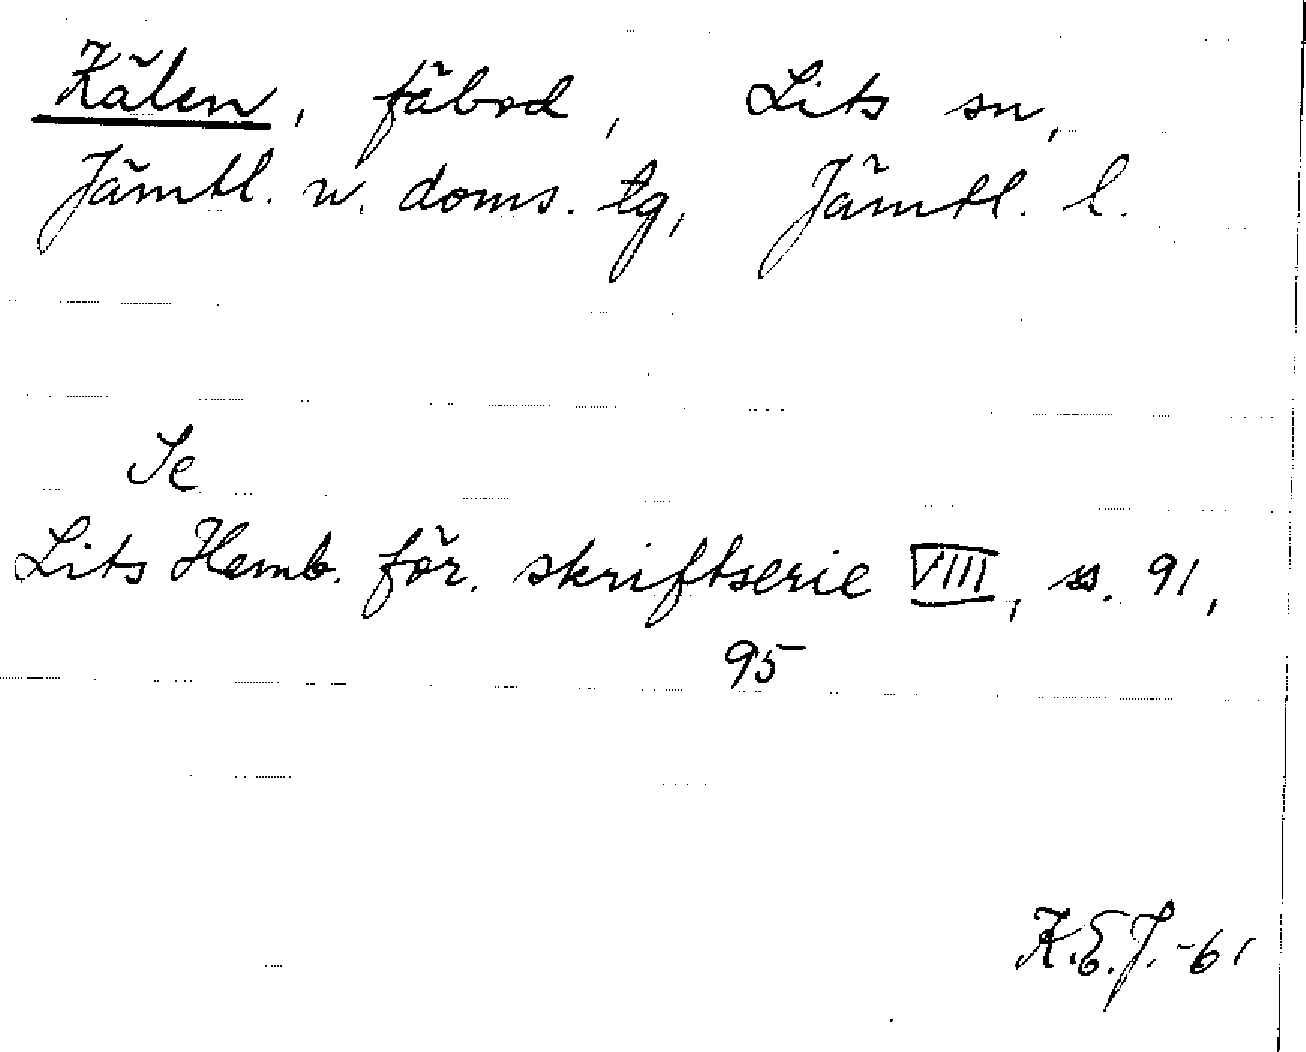 Kälen, fäbod, Lits sn,
Jämtl. n. doms. tg, Jämtl. l.
Se
Lits Hemb. för. skriftserie VIII, ss. 91,
95
K.E.J. -61